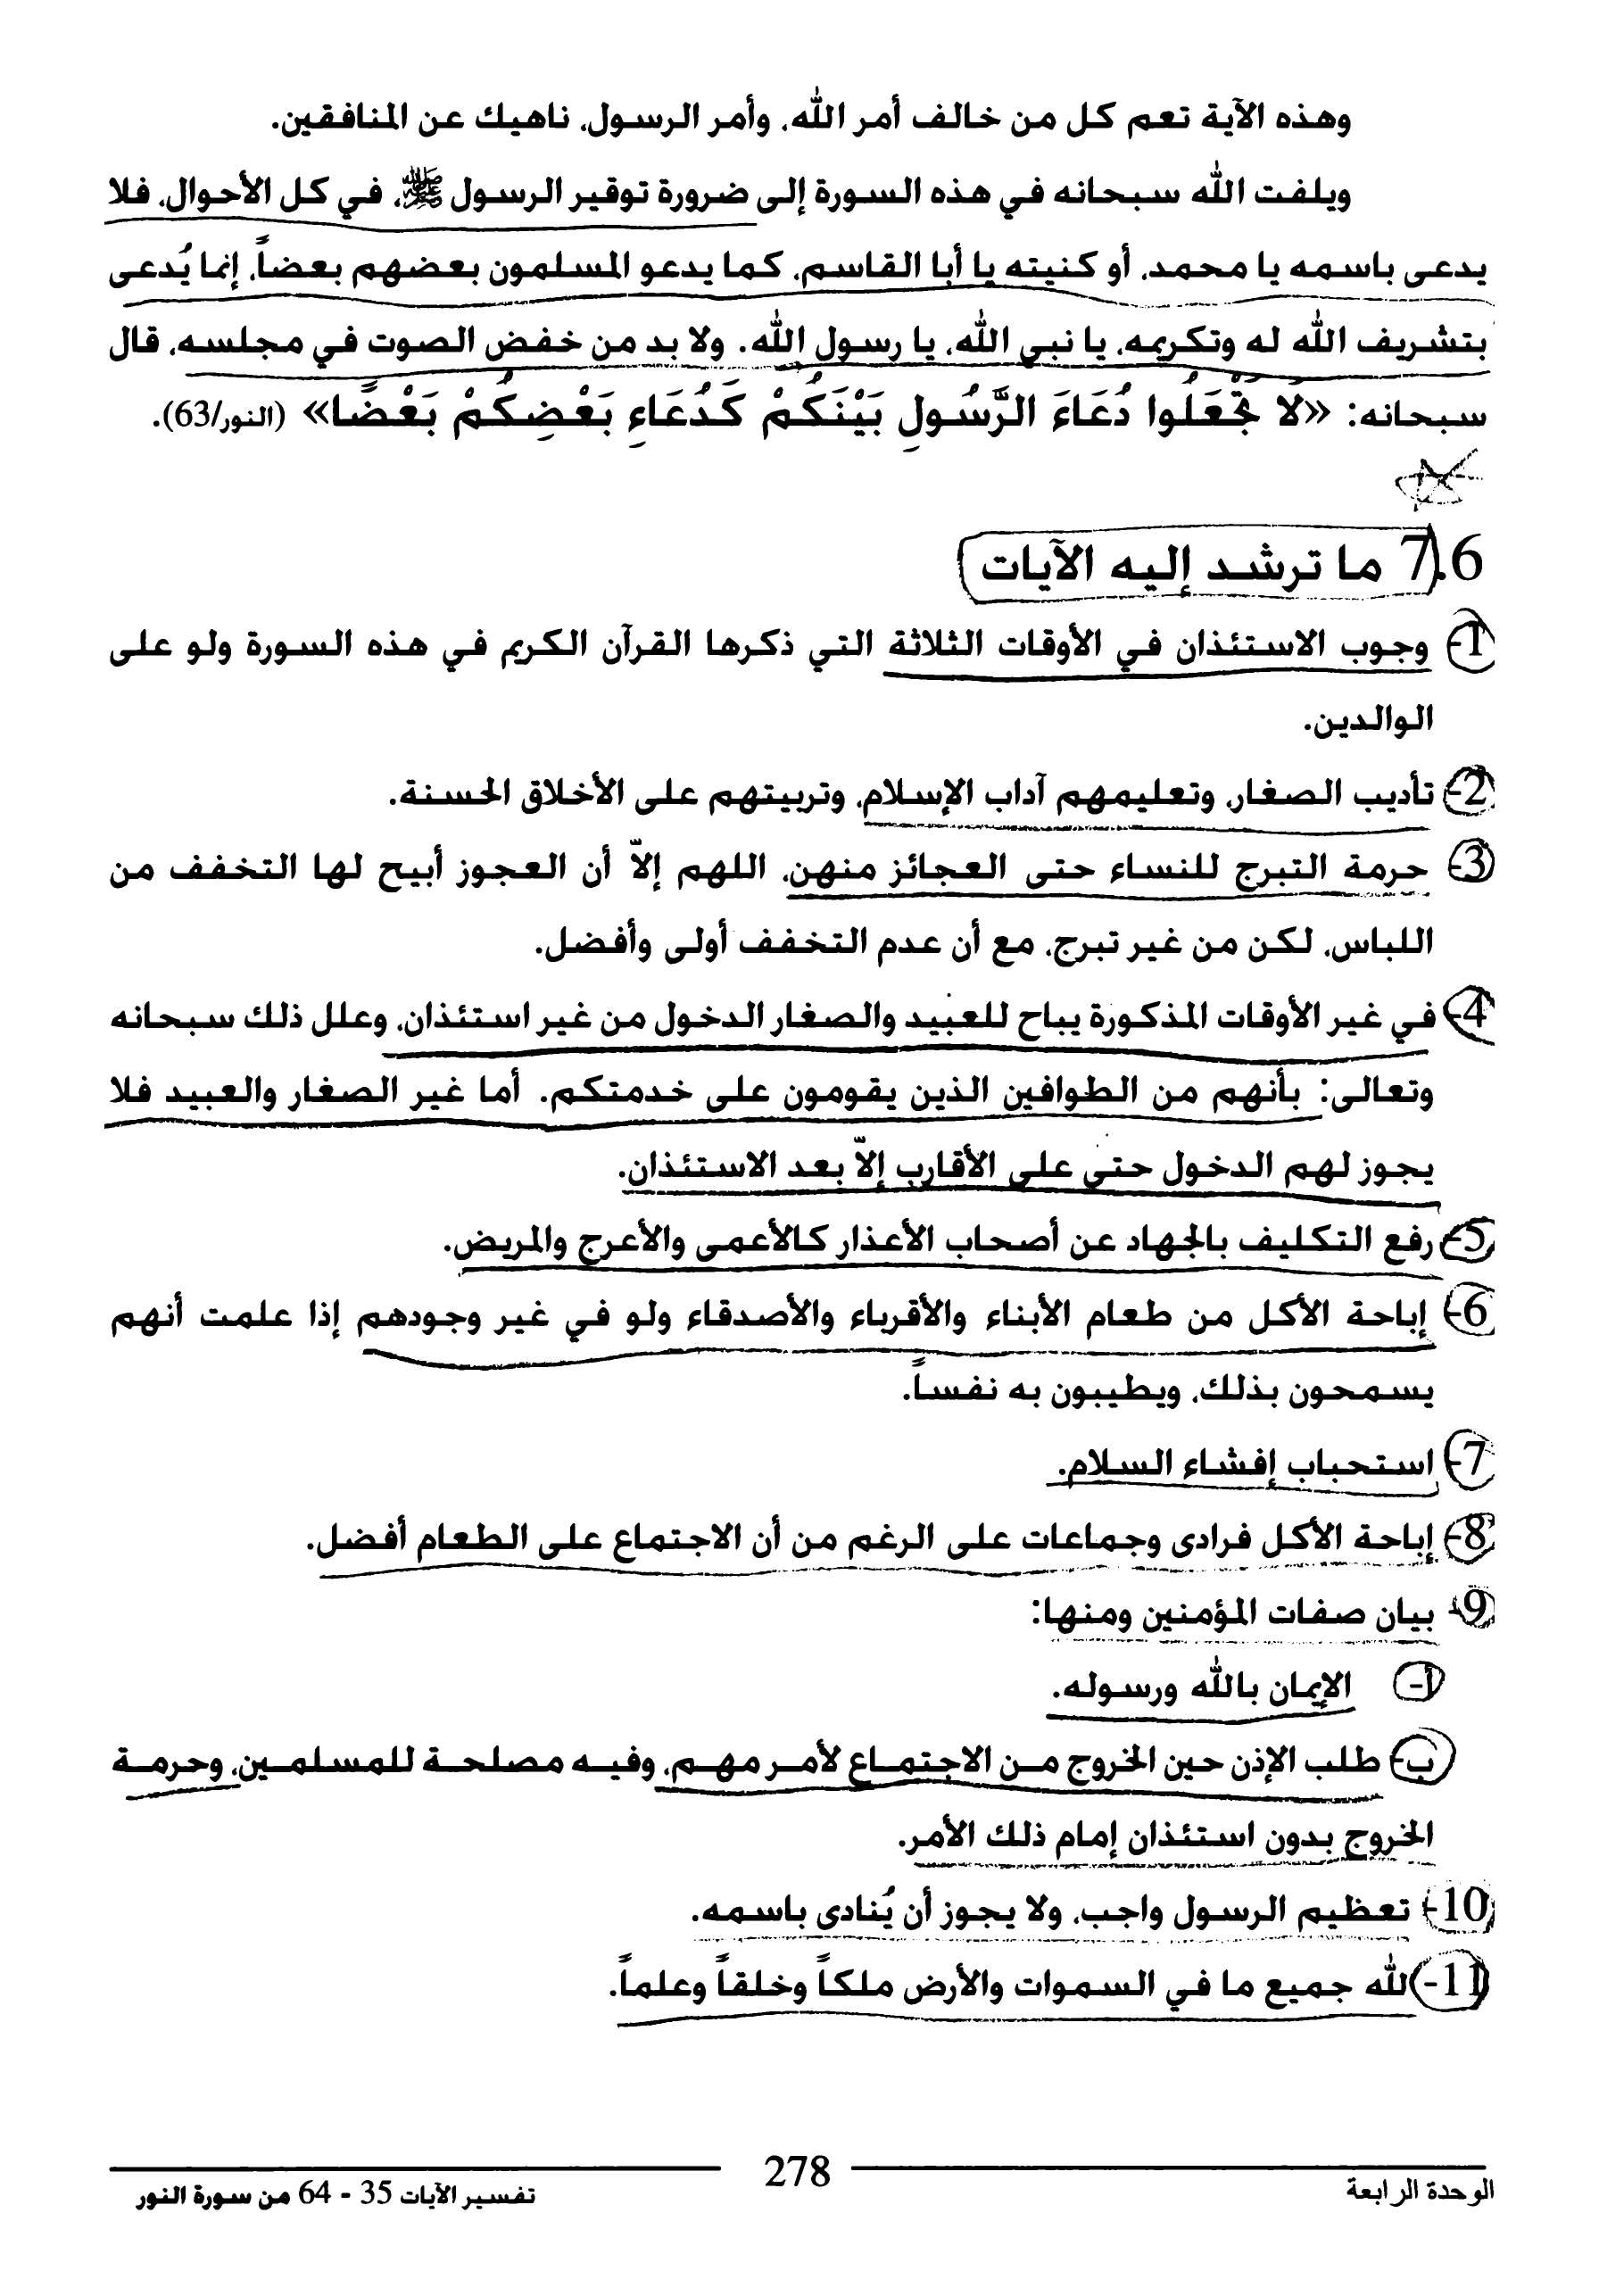 وهذه الآية تعم كل من خالف أمر الله، وأمر الرسول، ناهيك عن المنافقين.
ويلفت الله سبحانه في هذه السورة إلى ضرورة توقير الرسول ﷺ، في كل الأحوال، فلا
يدعى باسمه يا محمد، أو كنيته يا أبا القاسم، كما يدعو المسلمون بعضهم بعضاً، إنما يُدعى
بتشريف الله له وتكريمه، يا نبي الله، يا رسول الله. ولا بد من خفض الصوت في مجلسه، قال
سبحانه: «لَا تَجْعَلُوا دُعَاءَ الرَّسُولِ بَيْنَكُمْ كَدُعَاءِ بَعْضِكُمْ بَعْضًا» (النور/63).
7.6 ما ترشد إليه الآيات
1- وجوب الاستئذان في الأوقات الثلاثة التي ذكرها القرآن الكريم في هذه السورة ولو على
الوالدين.
2- تأديب الصغار، وتعليمهم آداب الإسلام، وتربيتهم على الأخلاق الحسنة.
3- حرمة التبرج للنساء حتى العجائز منهن، اللهم إلاّ أن العجوز أبيح لها التخفف من
اللباس، لكن من غير تبرج، مع أن عدم التخفف أولى وأفضل.
4- في غير الأوقات المذكورة يباح للعبيد والصغار الدخول من غير استئذان، وعلل ذلك سبحانه
وتعالى: بأنهم من الطوافين الذين يقومون على خدمتكم. أما غير الصغار والعبيد فلا
يجوز لهم الدخول حتى على الأقارب إلاّ بعد الاستئذان.
5- رفع التكليف بالجهاد عن أصحاب الأعذار كالأعمى والأعرج والمريض.
6- إباحة الأكل من طعام الأبناء والأقرباء والأصدقاء ولو في غير وجودهم إذا علمت أنهم
يسمحون بذلك، ويطيبون به نفساً.
7- استحباب إفشاء السلام.
8- إباحة الأكل فرادى وجماعات على الرغم من أن الاجتماع على الطعام أفضل.
9- بيان صفات المؤمنين ومنها:
أ- الإيمان بالله ورسوله.
ب- طلب الإذن حين الخروج من الاجتماع لأمر مهم، وفيه مصلحة للمسلمين، وحرمة
الخروج بدون استئذان إمام ذلك الأمر.
10- تعظيم الرسول واجب، ولا يجوز أن يُنادى باسمه.
11- لله جميع ما في السموات والأرض ملكاً وخلقاً وعلماً.
الوحدة الرابعة
278
تفسير الآيات 35 - 64 من سورة النور